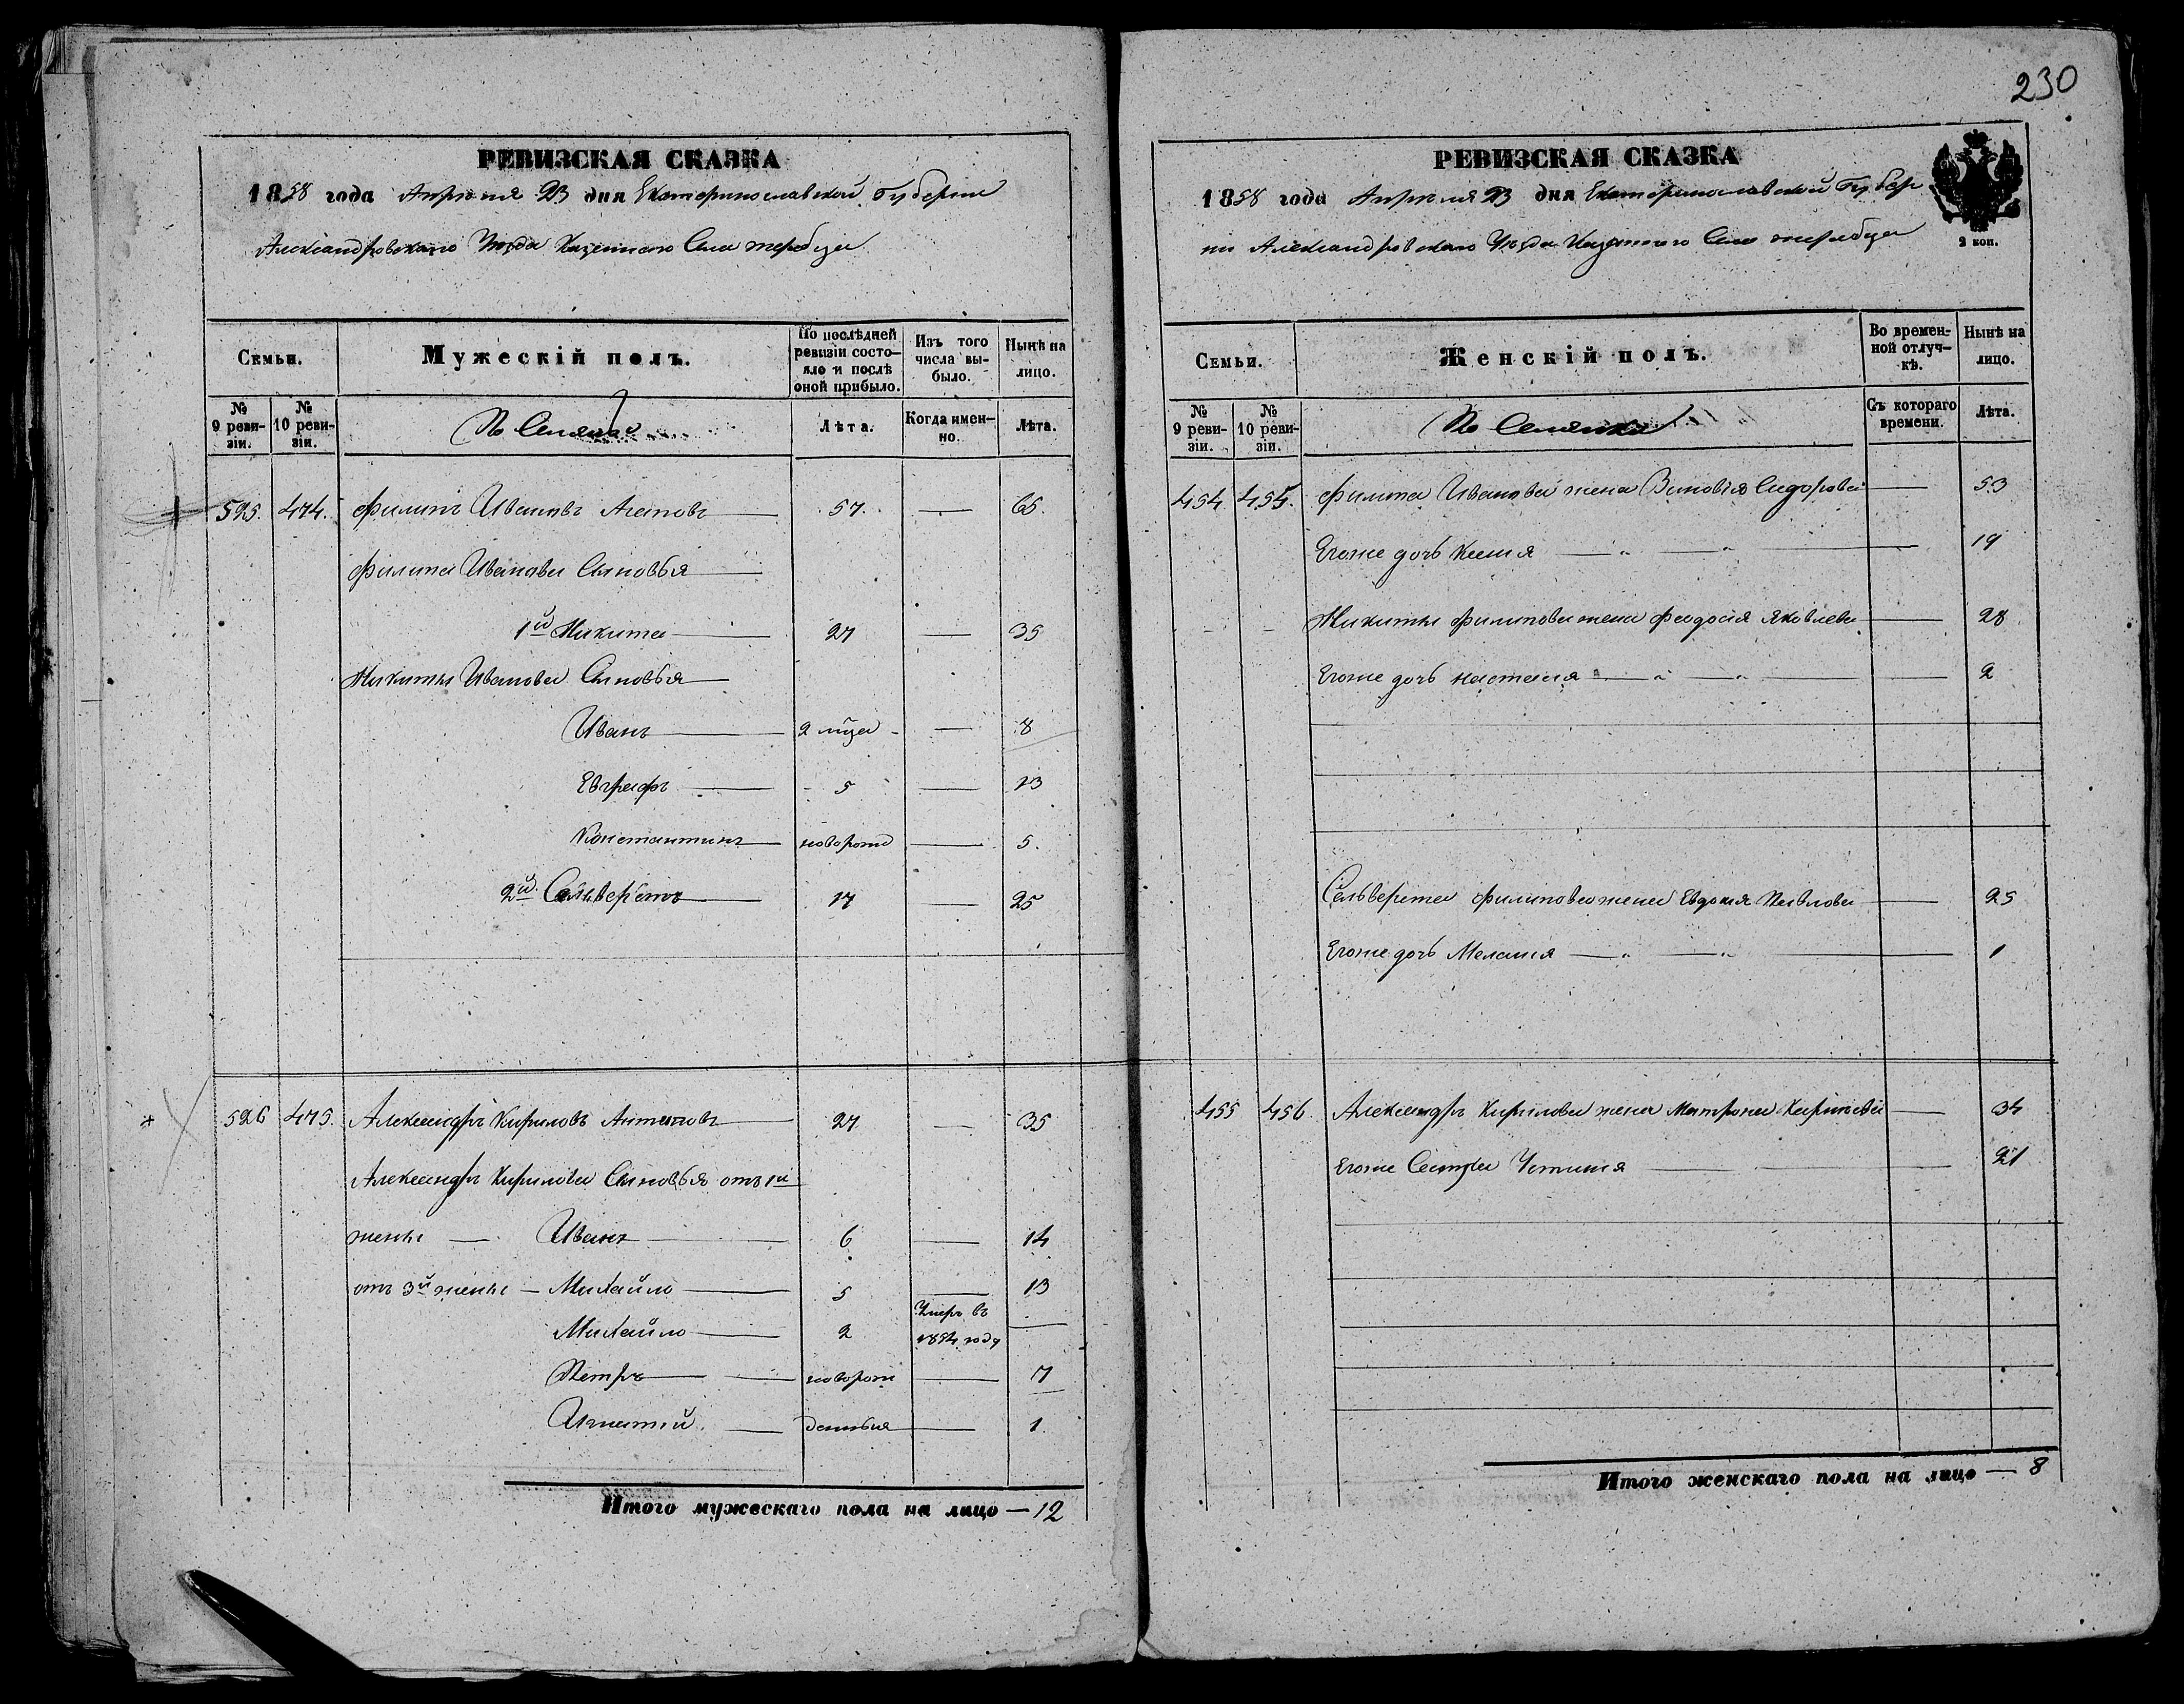 РЕВИЗСКАЯ СКАЗКА
1858 года Апрѣля 23 дня Екатеринославской Губерніи
Александровскаго Уѣзда Казеннаго Села жеребца
Семьи.
Мужескій полъ.
По послѣдней ревизіи состояло и послѣ оной прибыло.
Изъ того числа выбыло.
Нынѣ на лицо.
№ 9 ревизіи.
№ 10 ревизіи.
Лѣта.
Когда именно.
Лѣта.
525. 474. Филипъ Ивановъ Агаповъ 57. 65.
Филипа Иванова Сыновья
1й Никита 27 35
Никиты Иванова Сыновья
Иванъ 2 мца 8
Евграфъ 5 13
Константинъ новорожд 5.
2й Сельверстъ 17 25
526 475. Александръ Кириловъ Антиповъ 27 35
Александръ Кирилова Сыновья отъ 1й
жены Иванъ 6 14
отъ 3й жены Михайло 5 13
Михайло 2 Умеръ въ 1854 году
Петръ новорож 7
Игнатій 1.
Итого мужескаго пола на лицо — 12
230
РЕВИЗСКАЯ СКАЗКА
1858 года Апрѣля 23 дня Екатеринославской Губер
ніи Александровскаго Уѣзда Казеннаго Села жеребца
2 коп.
Семьи.
Женскій полъ.
Во временной отлучкѣ.
Нынѣ на лицо.
№ 9 ревизіи.
№ 10 ревизіи.
Съ котораго времени.
Лѣта.
454 455. Филипа Иванова жена Зиновія Сидорова 53
Егоже дочь Ксенія 19
Никиты Филипова жена Феодосія Яковлева 28
Егоже дочь настасія 2
Сельверста Филипова жена Евдокія Павлова 25
Егоже дочь Меланія 1
455 456. Александръ Кирилова жена Матрона Кирилова 34
Егоже Сестра Устинія 21
Итого женскаго пола на лицо — 8